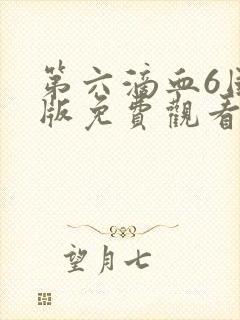 第六滴血6国
版免費觀看
望月七